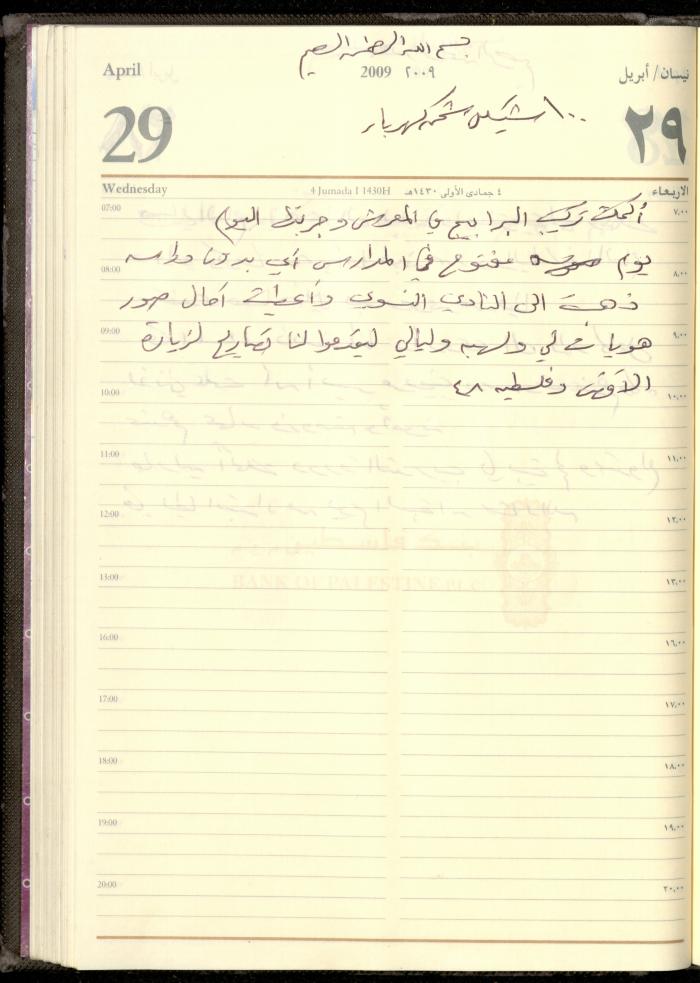 بسم الله الرحمن الرحيم
April 2009 ٢٠٠٩ نيسان/ أبريل
29 ٢٩
١٠٠ شيكل شحن كهرباء
Wednesday 4 Jumada I 1430H ٤ جمادى الأولى ١٤٣٠هـ الاربعاء
07:00 ٧,٠٠
أكملت تركيب البرابيج في المعرش وجربتها اليوم
يوم مفتوح في المدارس أي بدون دراسة
08:00 ٨,٠٠
ذهبت الى النادي النسوي وأعطيت آمال صور
09:00 ٩,٠٠
هويات لي ولهبه وليالي ليقدموا لنا تصاريح لزيارة
10:00 ١٠,٠٠
الأقصى وفلسطين ٤٨
11:00 ١١,٠٠
12:00 ١٢,٠٠
BANK OF PALESTINE PLC
13:00 ١٣,٠٠
16:00 ١٦,٠٠
17:00 ١٧,٠٠
18:00 ١٨,٠٠
19:00 ١٩,٠٠
20:00 ٢٠,٠٠